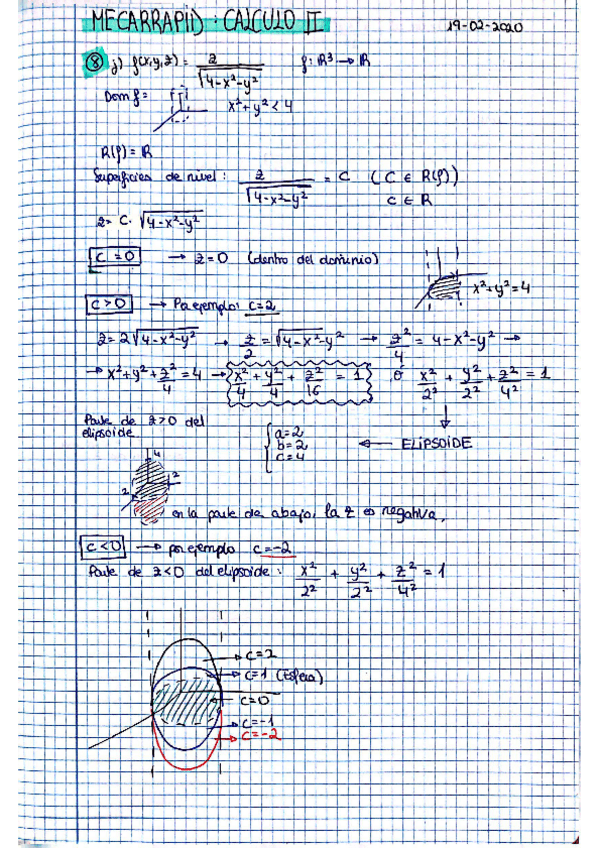 MECARRAPID : CALCULO II 19-02-2020
⑧ j) f(x,y,z) = z / √(4-x²-y²) f: ℝ³ → ℝ
Dom f = x²+y² < 4
R(f) = ℝ
Superficies de nivel: z / √(4-x²-y²) = C (C ∈ R(f))
C ∈ ℝ
z = C · √(4-x²-y²)
C = 0 → z = 0 (dentro del dominio)
x²+y² = 4
C > 0 → Por ejemplo: C = 2
z = 2√(4-x²-y²) → z/2 = √(4-x²-y²) → z²/4 = 4-x²-y² →
→ x²+y²+z²/4 = 4 → x²/4 + y²/4 + z²/16 = 1 ó x²/2² + y²/2² + z²/4² = 1
Parte de z>0 del
elipsoide
a=2
b=2
c=4
← ELIPSOIDE
4
2
2
en la parte de abajo, la z es negativa.
C < 0 → por ejemplo C = -2
Parte de z<0 del elipsoide: x²/2² + y²/2² + z²/4² = 1
C=2
C=1 (Esfera)
C=0
C=-1
C=-2